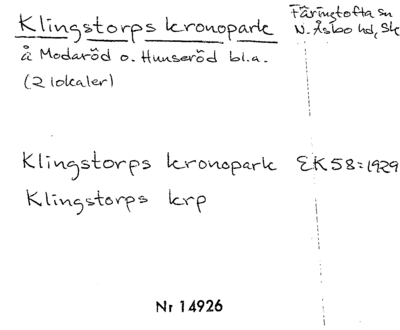 Klingstorps kronopark
Färingtofta sn
N. Åsbo hd, Sk
å Modaröd o. Hunseröd bl.a.
(2 lokaler)
Klingstorps kronopark EK58:1929
Klingstorps krp
Nr 14926